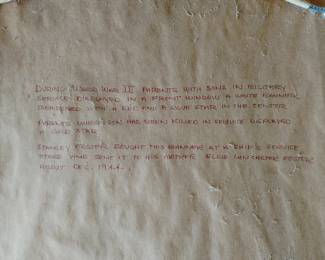 DURING WORLD WAR II PARENTS WITH SONS IN MILITARY
SERVICE DISPLAYED IN A FRONT WINDOW A WHITE BANNER
BORDERED WITH A RED AND A BLUE STAR IN THE CENTER
PARENTS WHOSE SON HAS BEEN KILLED IN SERVICE DISPLAYED
A GOLD STAR
STANLEY FOSTER BOUGHT THIS BANNER AT A SHIP'S SERVICE
STORE AND SENT IT TO HIS MOTHER FOSTER
ABOUT DEC. 1944.